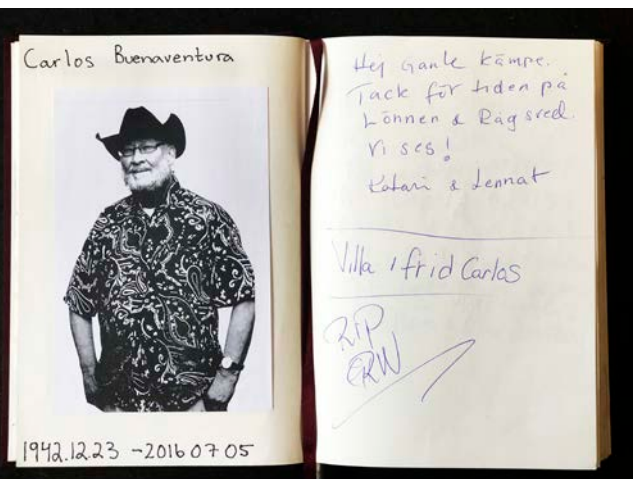 Carlos Buenaventura
1942.12.23 - 2016 07 05
Hej Gamle Kämpe.
Tack för tiden på
Lönnen & Rågsved.
Vi ses!
& Lennat
Villa i frid Carlos
RIP